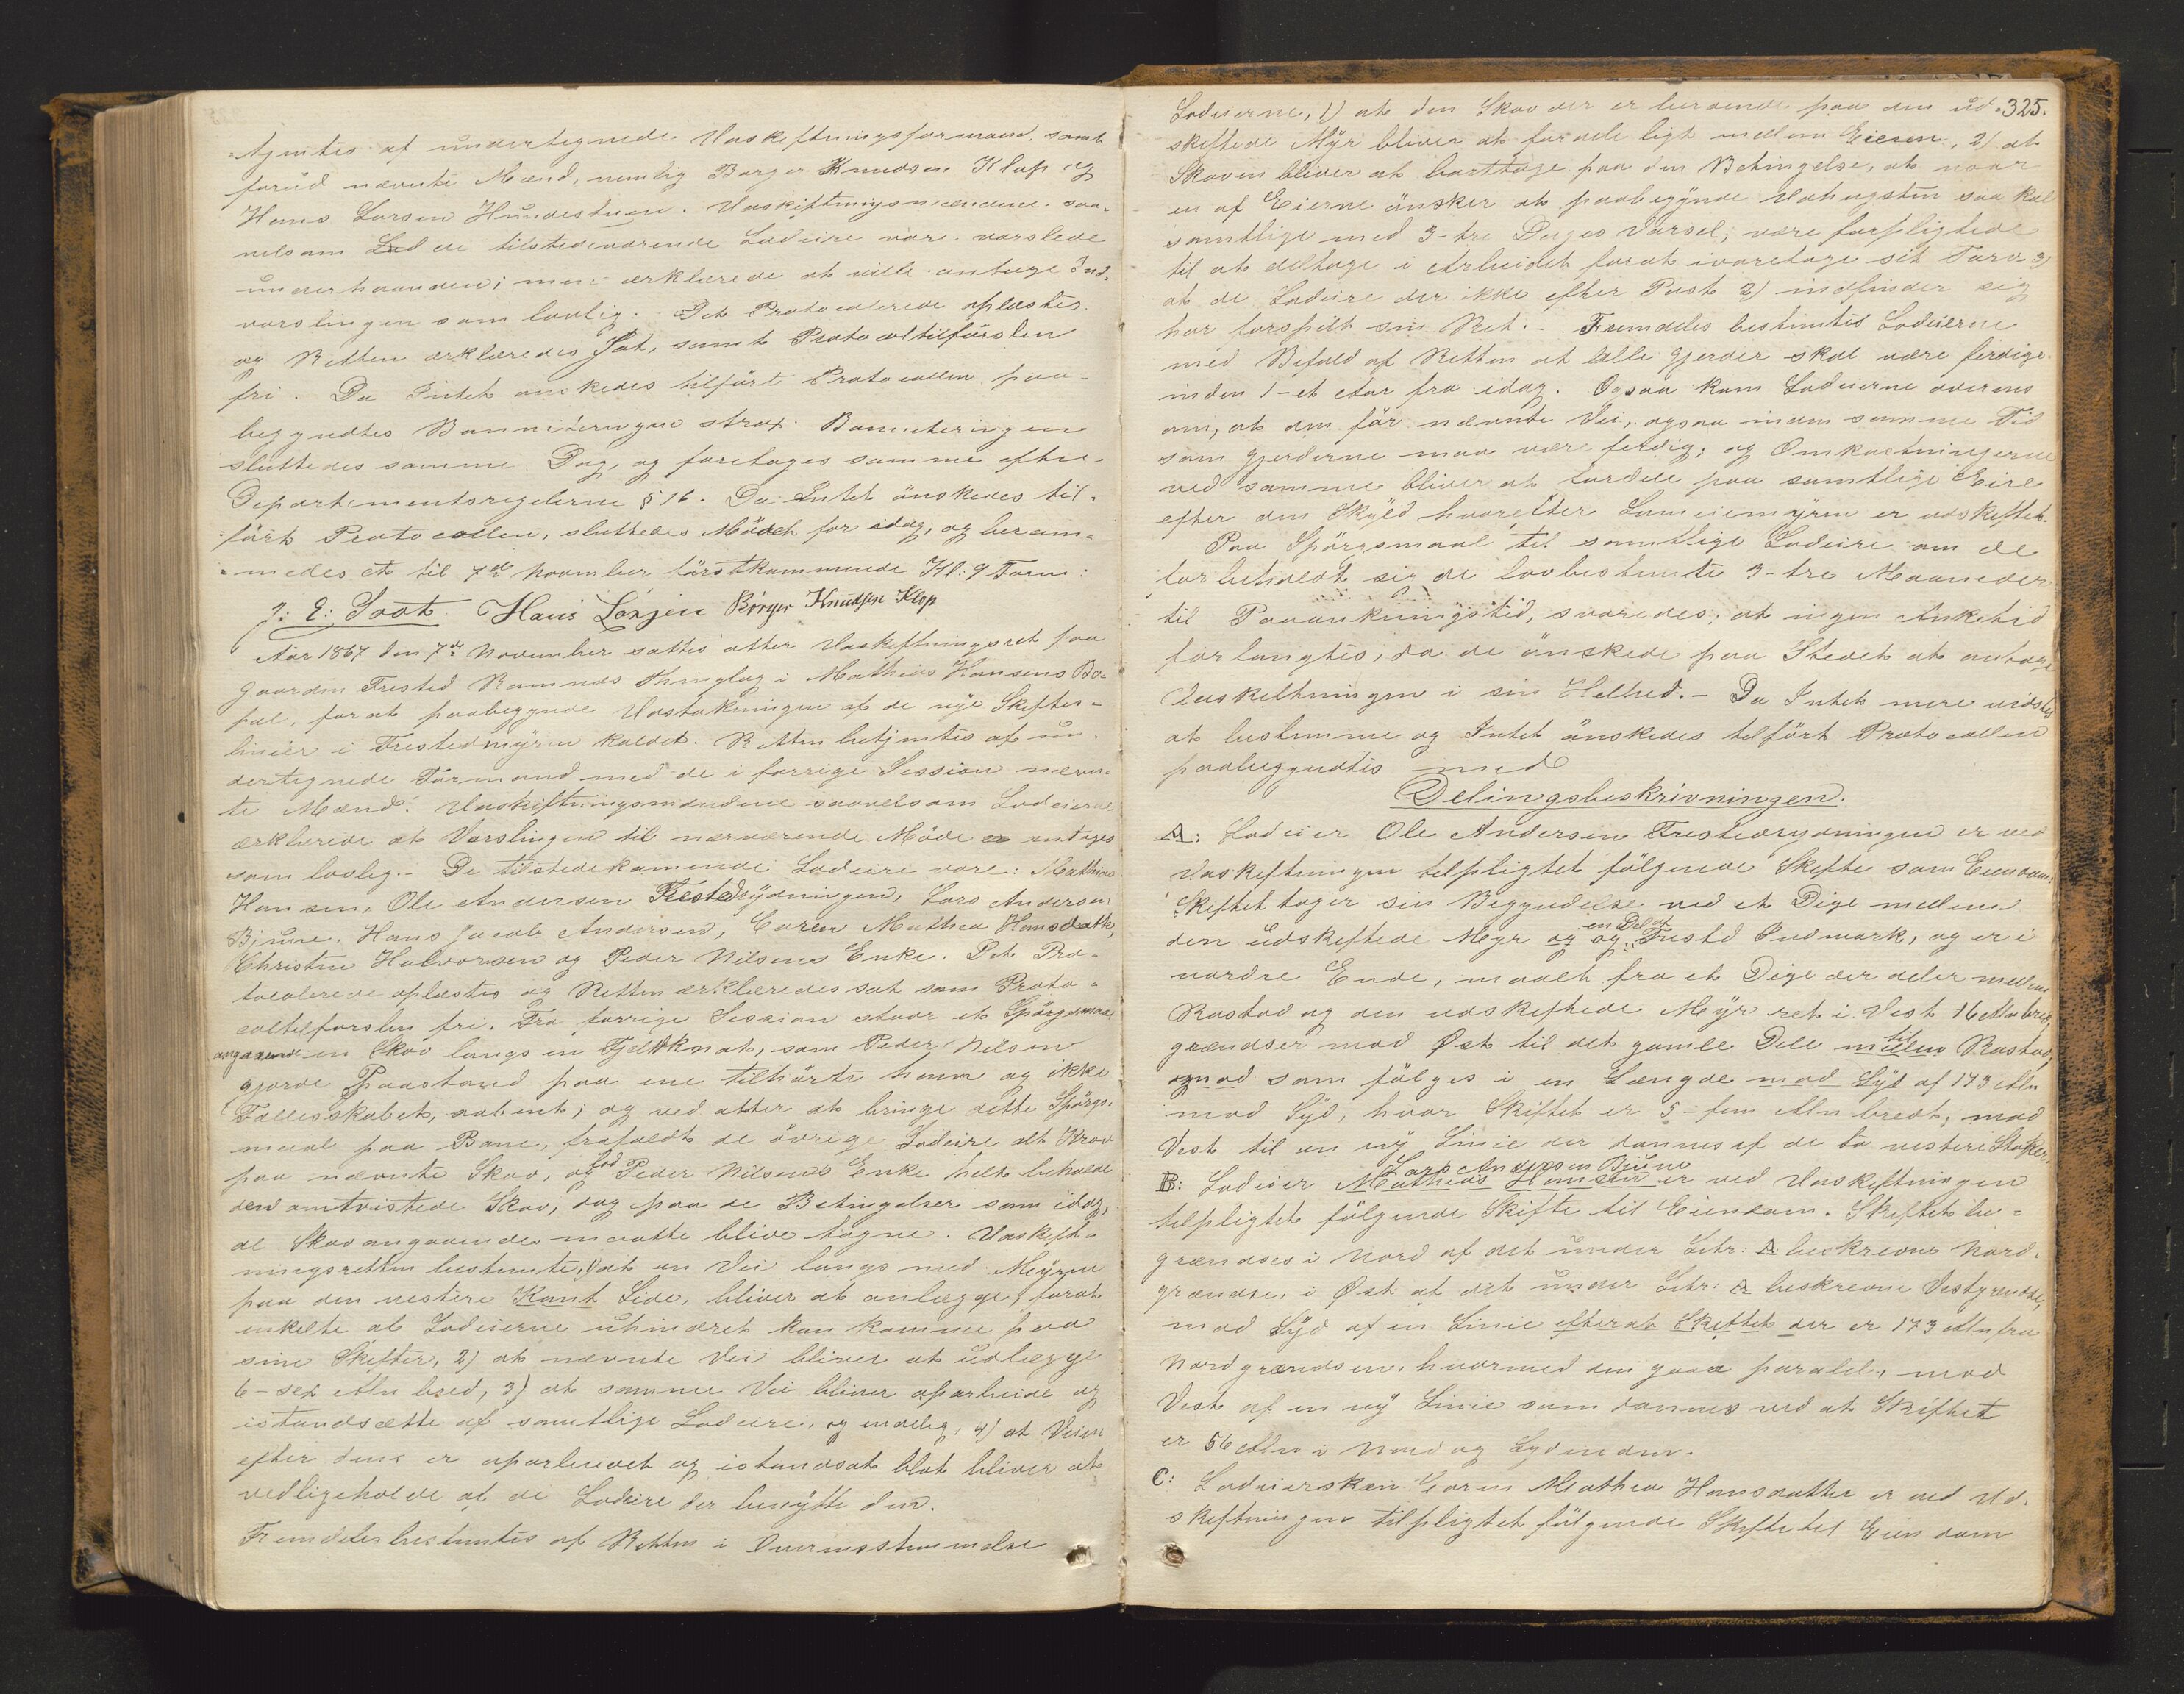 tjentes af undertegnede Udskiftningsformand, samt
forud nævnte Mænd, nemlig Borger Knudsen Klop og
Hans Larsen Hundestuen. Udskiftningsmændene saa-
velsom Lod de tilstedeværende Lodeiere vare varslede
underhaanden; men erklærede at ville antage Ind-
varslingen som lovlig. Det Protocolerede oplæstes
og Retten erklæredes sat, samt Protocoltilförslen
fri. Da Intet önskedes tilfört Protocollen paa-
begyndtes Boniteringen strax. Boniteringen
sluttedes samme Dag, og foretoges samme efter
Departementsreglerne § 16. Da Intet önskedes til-
fört Protocollen, sluttedes Mödet for idag, og beram-
medes et til 7de November förstkommende Kl: 9 Form:
J: E: Soot Hans Larsen Börger Knudsen Klop
Aar 1867 den 7de November sattes atter Udskiftningsret paa
Gaarden Frested Ramnes Thinglag i Mathias Hansens Bo-
pæl, for at paabegynde Udstakningen af de nye Skiftes-
linier i Frestedmyren kaldet. Retten betjentes af un-
dertegnede Formand med de i forrige Session nævn-
te Mænd. Udskiftningsmændene saavelsom Lodeierne
erklærede at Varslingen til nærværende Möde er antages
som lovlig. – De tilstedekomende Lodeiere vare: Mathias
Hansen, Ole Andersen Frestedrydningen, Lars Andersen
Bjune, Hans Jacob Andersen, Caren Mathea Hansdatt:,
Christen Halvorsen og Peder Nilsens Enke. Det Pro-
tocolerede oplæstes og Retten erklæredes sat som Proto-
coltilförslen fri. Fra forrige Session staar et Spörgsmaal
angaaende en Skov langs en Fjeldknat, som Peder Nilsen
gjorde Paastand paa ene tilhörte ham og ikke
Fællesskabet, aabent; og ved atter at bringe dette Spörgs-
maal paa Bane, frafaldt de övrige Lodeiere alt Krav
paa nævnte Skov, og lod Peder Nilsens Enke helt beholde
den omtvistede Skov, dog paa de Betingelser som idag,
al Skov angaaende maatte blive tagne. Udskift-
ningsretten bestemte, 1) at en Vei langs med Myren
paa den vestere Kant Side, bliver at anlægge, forat
enkelte af Lodeierne uhindret kan komme paa
sine Skifter, 2) at nævnte Vei bliver at udlægge
6–sex Aln bred, 3) at samme Vei bliver oparbeide og
istandsætte af samtlige Lodeiere, og endelig, 4) at Veien
efter den er oparbeidet og istandsat blot bliver at
vedligeholde af de Lodeiere der benytte den.
Fremdeles bestemtes af Retten i Overensstemmelse
325.
Lodeierne, 1) at den Skov der er beroende paa den ud-
skiftede Myr bliver at fordele ligt mellem Eieren, 2) at
Skoven bliver at borttage paa den Betingelse, at naar
en af Eierne önsker at paabegynde Udhugsten saa skal
samtlige med 3–tre Dages Varsel, være forpligtede
til at deltage i Arbeidet forat ivaretage sit Tarv – 3)
at de Lodeiere der ikke efter Post 2) indfinder sig
har forspilt sin Ret. – Fremdeles bestemtes Lodeierne
med Bifald af Retten at alle Gjerder skal være ferdige
inden 1–et Aar fra idag. Ogsaa kom Lodeierne overens
om, at den för nævnte Vei, ogsaa inden samme Tid
som Gjerderne maa være ferdig, og Omkostningerne
ved samme bliver at fordele paa samtlige Eiere
efter den Skyld hvorefter Sameiemyren er udskiftet.
Paa Spörgsmaal til samtlige Lodeiere om de
forbeholdt sig de lovbestemte 3–tre Maaneder
til Paaankningstid, svaredes, at ingen Anketid
forlangtes, da de önskede paa Stedet at antage
Udskiftningen i sin Helhed. – Da Intet mere vidstes
at bestemme og Intet önskedes tilfört Protocollen
paabegyndtes med
Delingsbeskrivningen.
A: Lodeier Ole Andersen Frestedrydningen er ved
Udskiftningen tilpligtet fölgende Skifte som Eiendom:
Skiftet tager sin Begyndelse ved et Dige mellem
den udskiftede Myr og og en Del af Frestd Indmark, og er i
nordre Ende, maalt fra et Dige der deler mellem
Rostad og den udskiftede Myr ret i Vest 16 Aln bred,
grændser mod Øst til det gamle Dele til mellem Rostad,
og mod som fölges i en Længde mod Syd af 173 Aln
mod Syd, hvor Skiftet er 5–fem Aln bredt, mod
Vest til en ny Linie der dannes af de to vestere Staker.
B: Lodeier Mathias Hansen Lars Andersen Bjune er ved Udskiftningen
tilpligtet fölgende Skifte til Eiendom. Skiftet be-
grændses i Nord af det under Litr: A beskrevne Nord-
grændse, i Øst af det under Litr: A beskrevne Vestgrændse,
mod Syd af en Linie efterat Skiftet der er 173 Aln fra
Nordgrændsen, hvormed den gaar paralel, mod
Vest af en ny Linie som dannes ved at Skiftet
er 56 Aln i Nord og Sydenden.
C: Lodeiersken Caren Mathea Hansdatter er ved Ud-
skiftningen tilpligtet fölgende Skifte til Eiendom